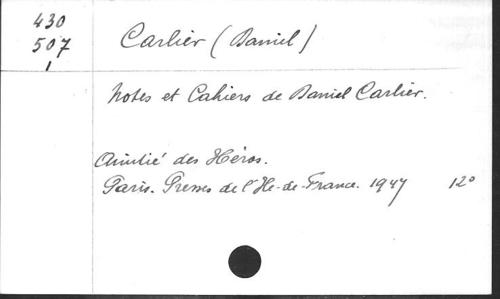 430
507
1
Carlier (Daniel)
Notes et Cahiers de Daniel Carlier.
Amitié des Héros.
Paris. Presses de l'Ile-de-France. 1947 12°